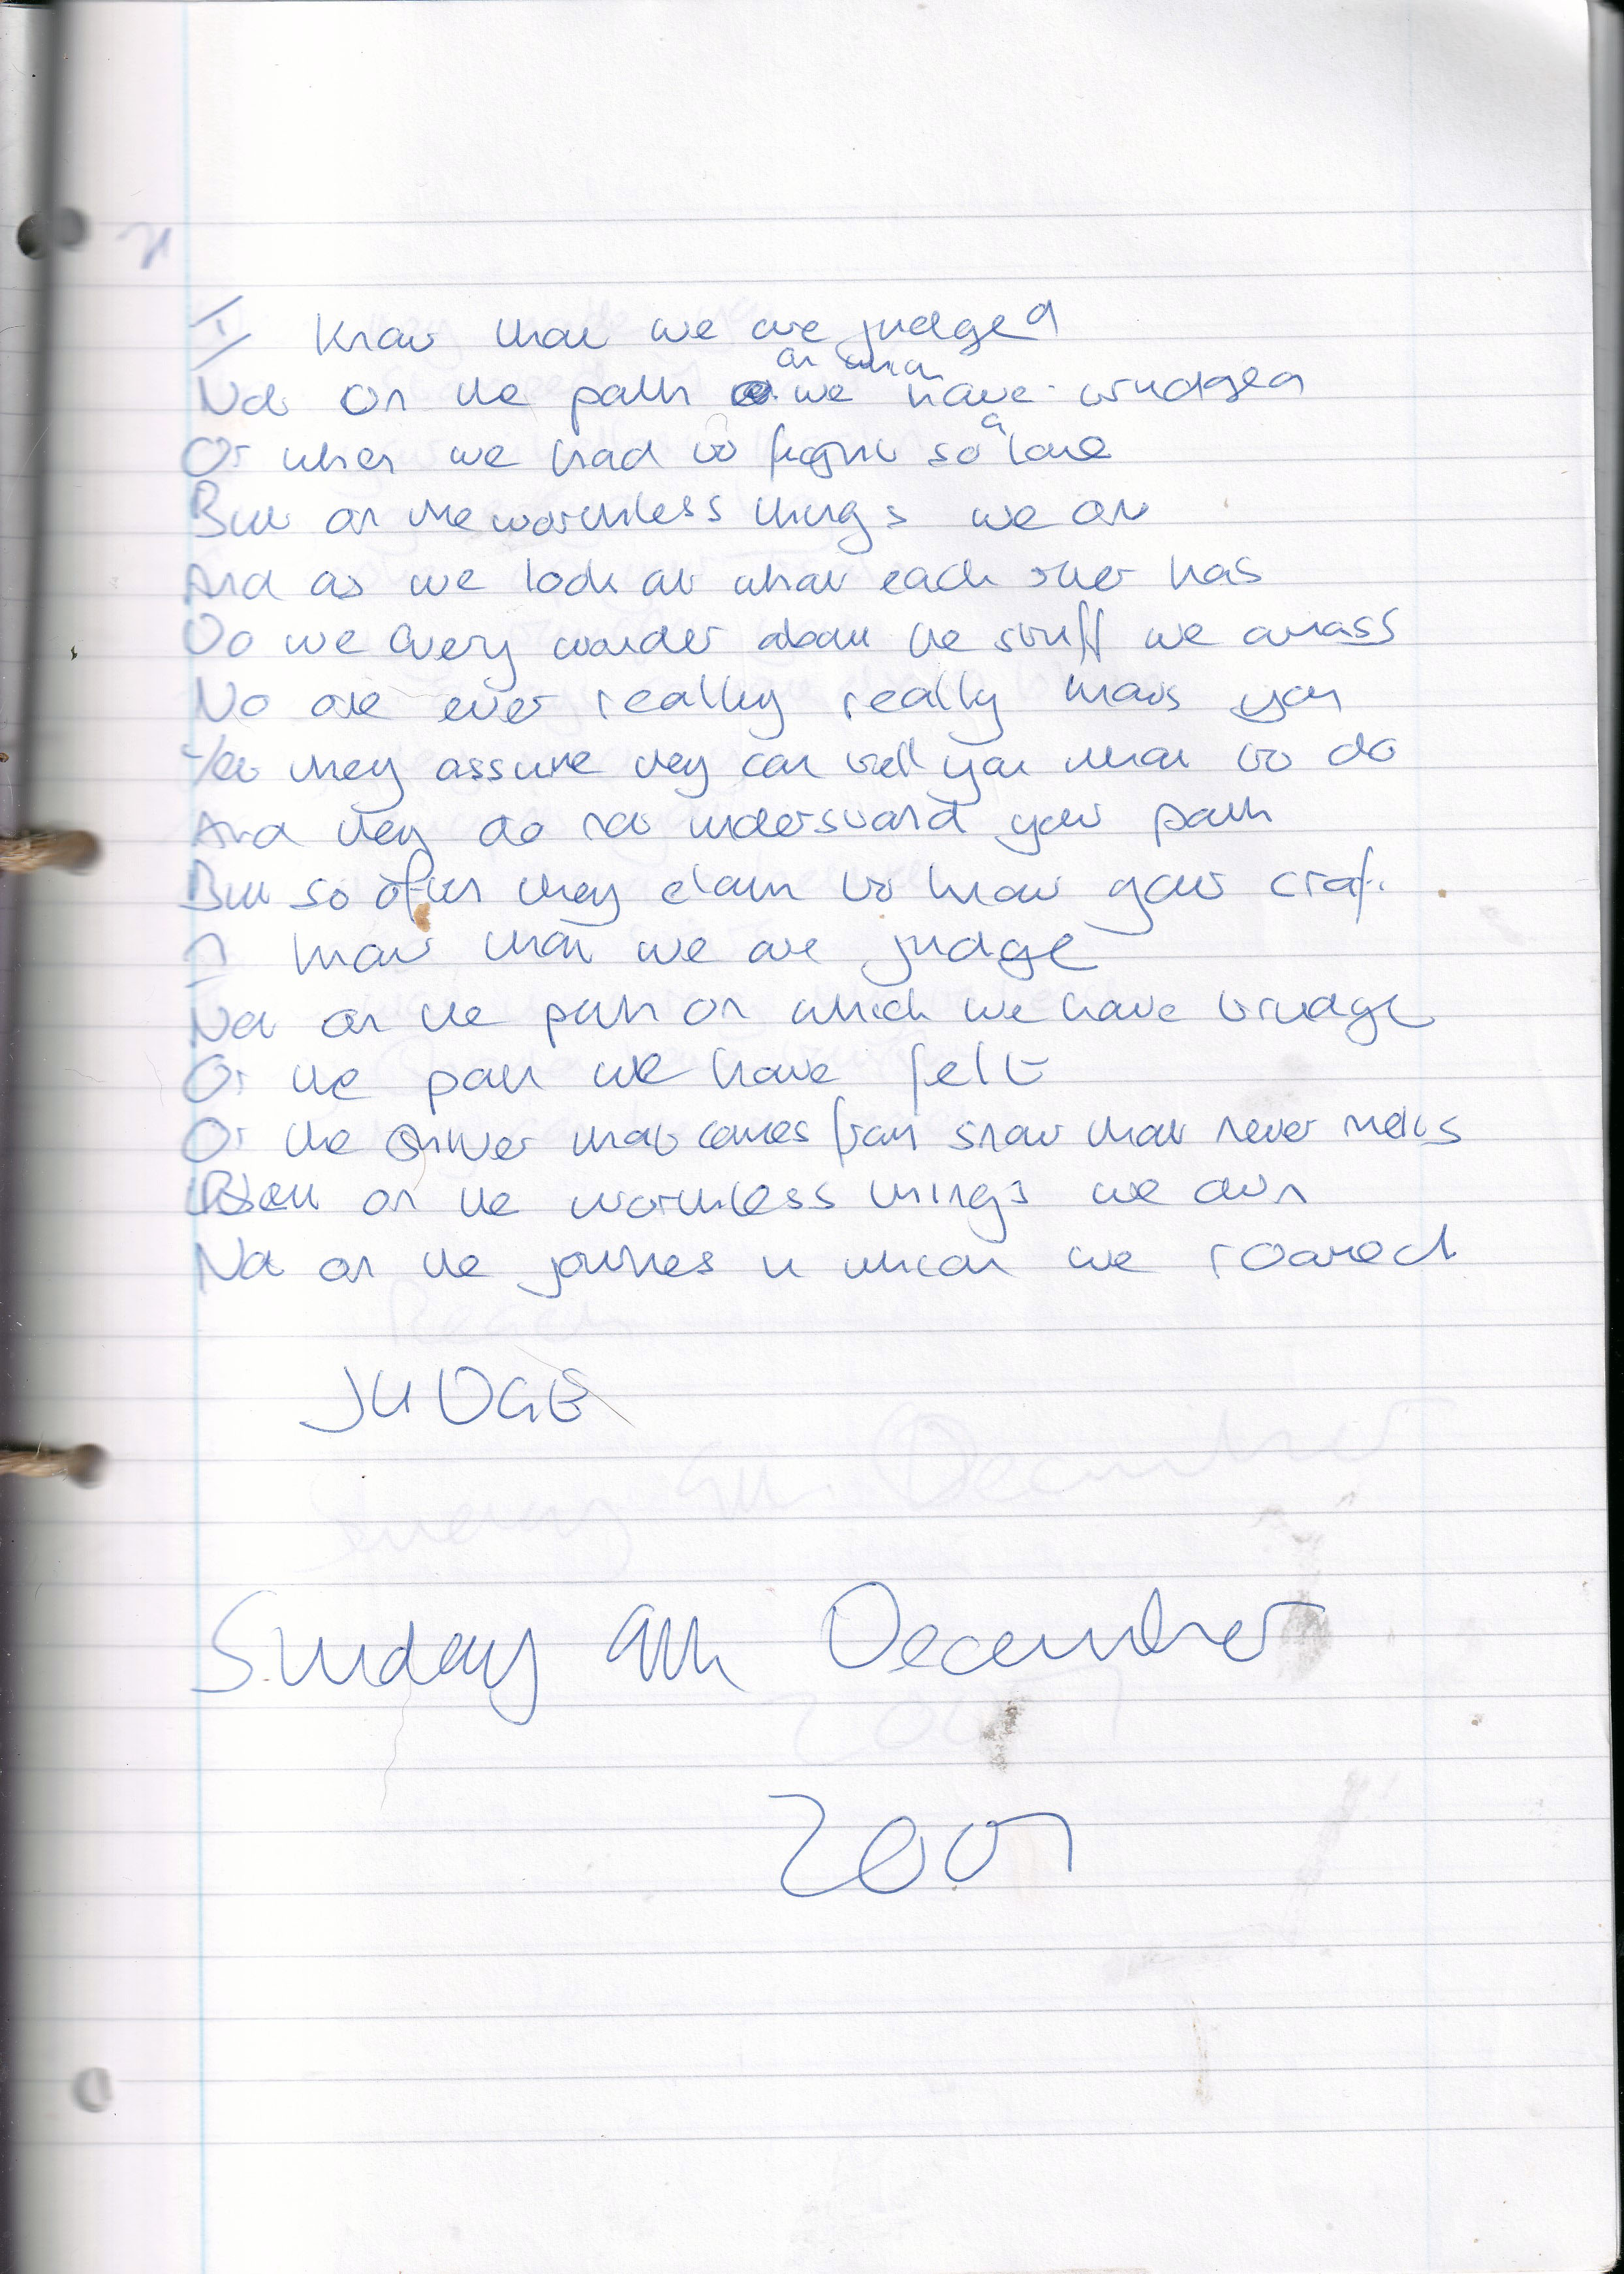 I know that we are judged
Not on the path on which we have trudged
Or when we had to fight so alone
But on the worthless things we own
And as we look at what each other has
Do we every wonder about the stuff we amass
No one ever really really knows you
Yet they assume they can tell you what to do
And they do not understand your path
But so often they claim to know your craft
I know that we are judge
Not on the path on which we have trudge
Or the pain we have felt
Or the shiver that comes from snow that never melts
But on the worthless things we own
Not on the journes in which we roamed
JUDGE
Sunday 9th December
2007